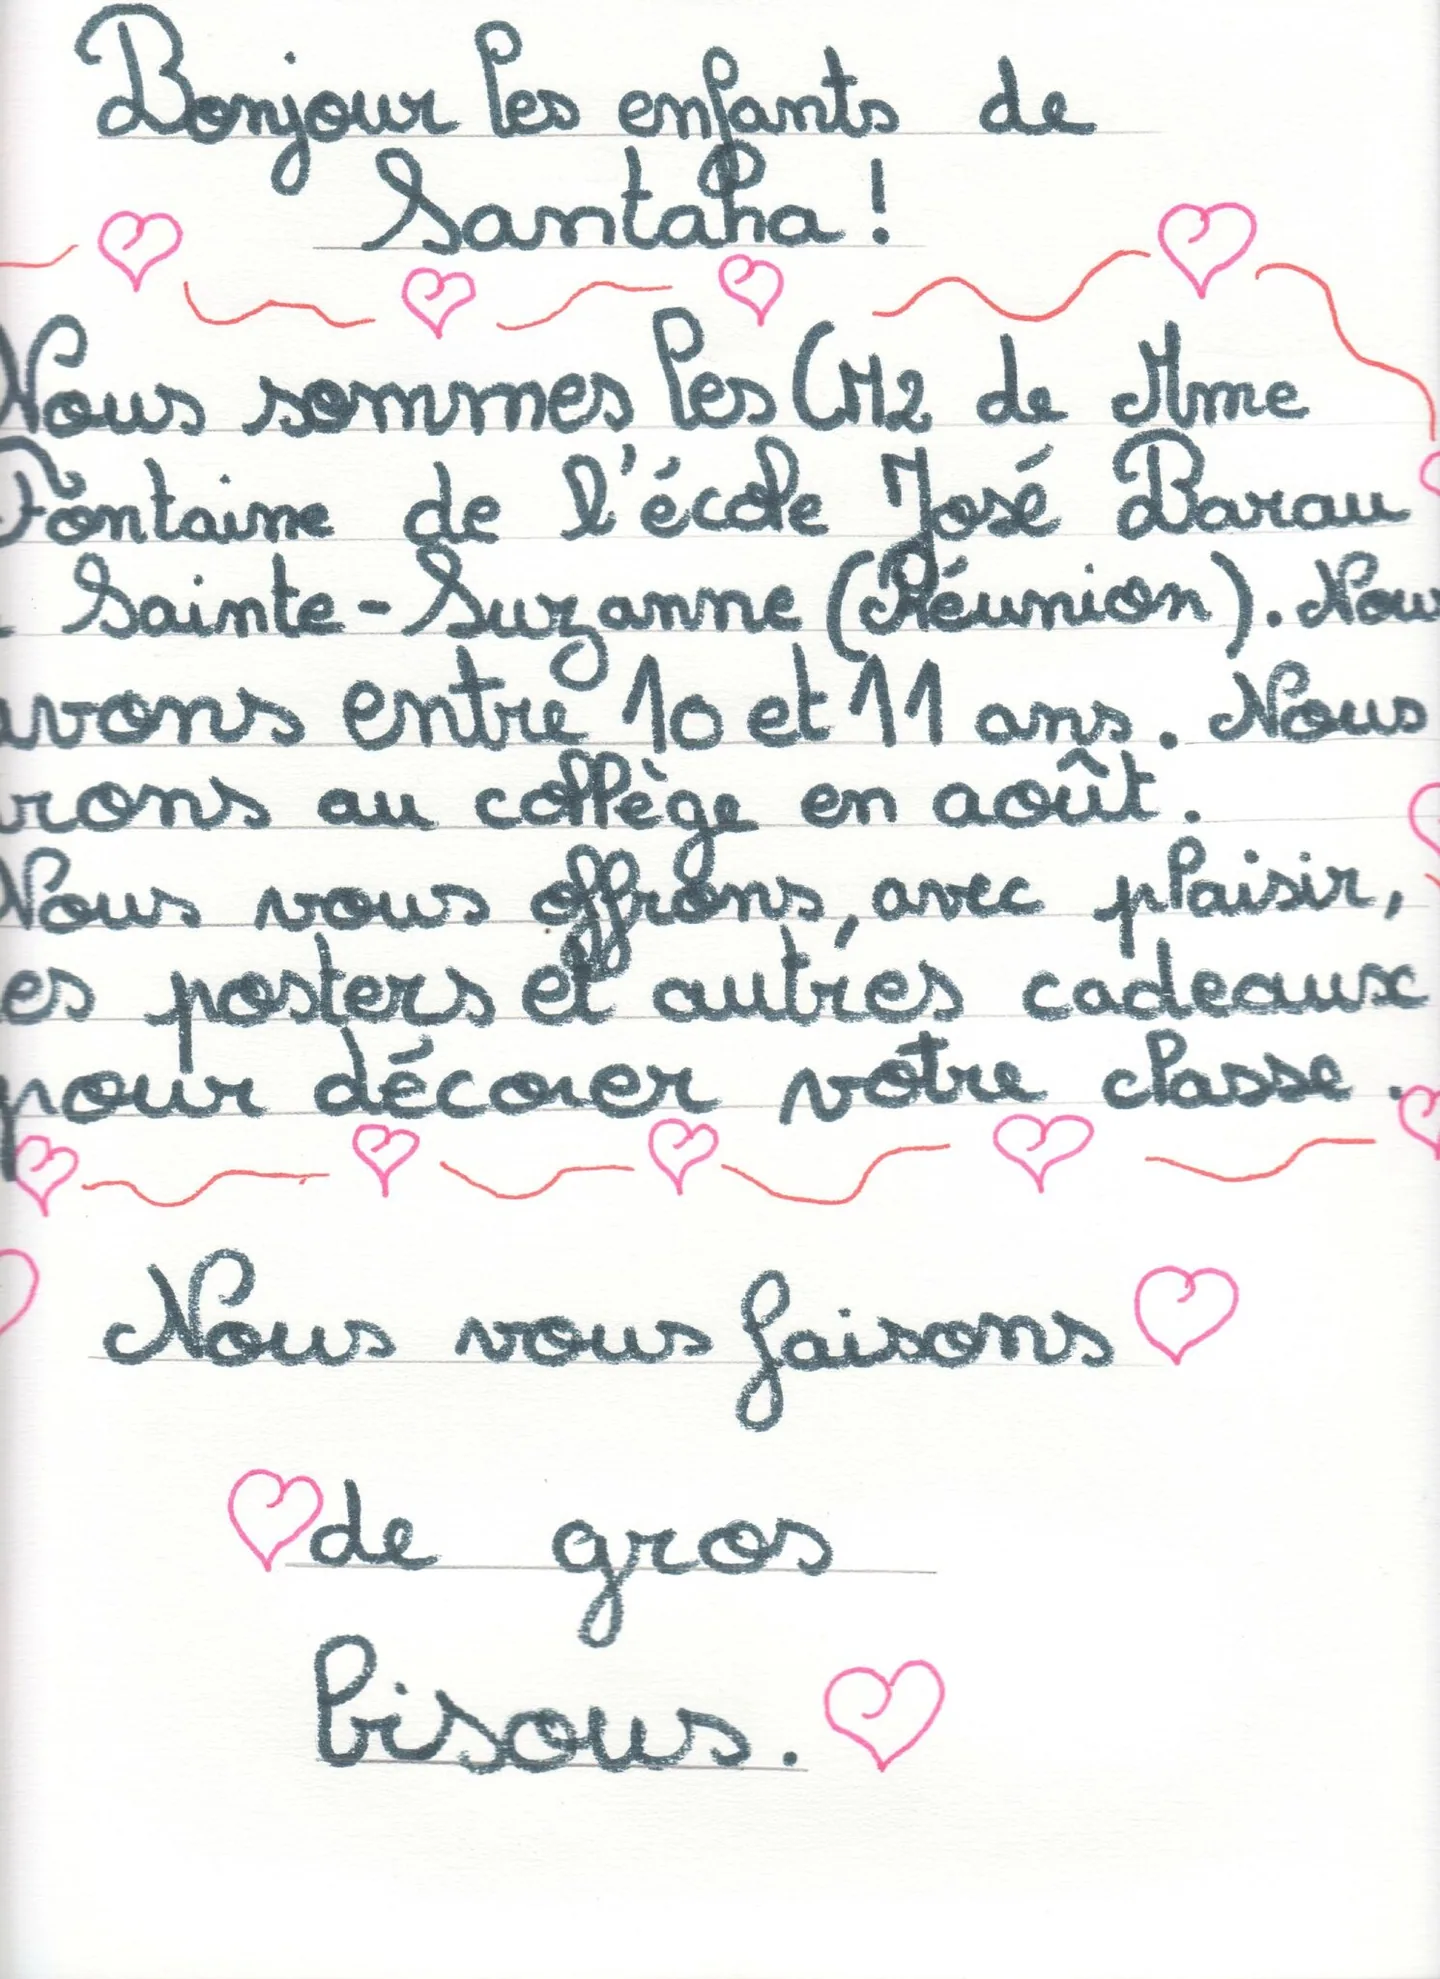 Bonjour les enfants de
Santaha !
Nous sommes les CM2 de Mme
Fontaine de l'école José Barau
Sainte-Suzanne (Réunion). Nous
avons entre 10 et 11 ans. Nous
irons au collège en août.
Nous vous offrons, avec plaisir,
es posters et autres cadeaux
pour décorer votre classe.
Nous vous faisons
de gros
bisous.